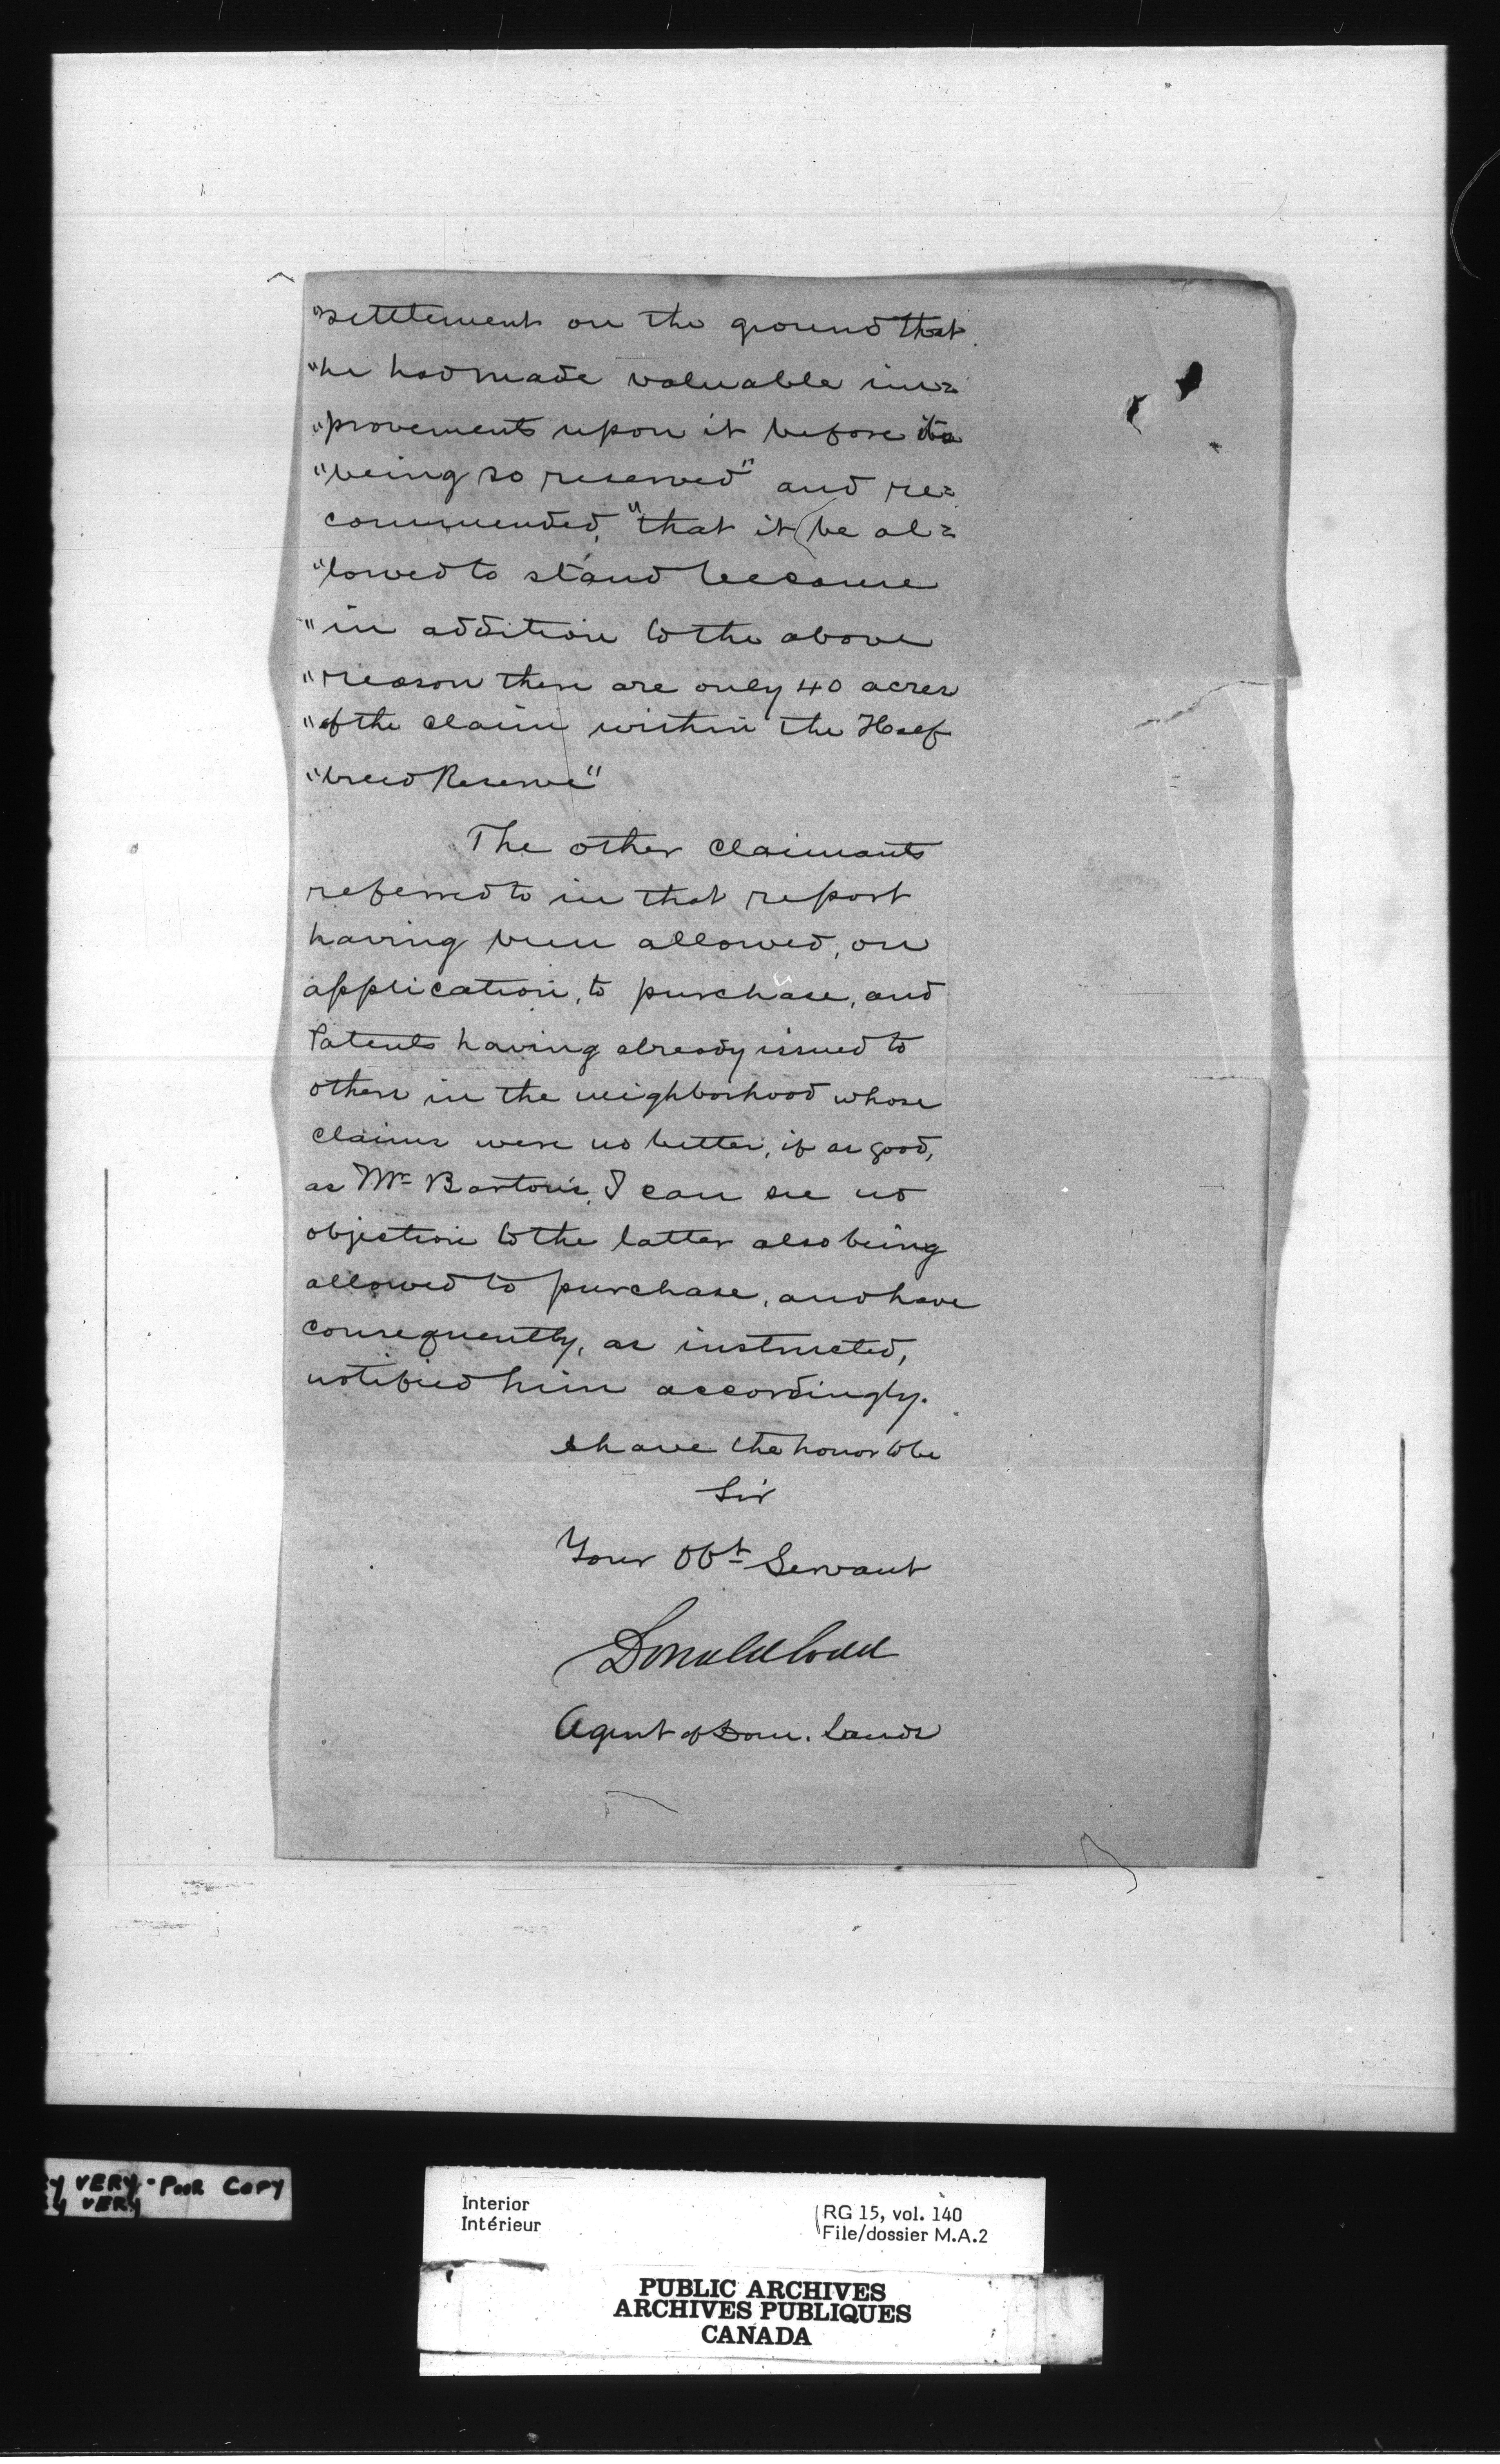 "settlement on the ground that
"he had made valuable im=
"provements upon it before its
"being so reserved" and re=
commended, "that it be al=
"lowed to stand because
"in addition to the above
"reason there are only 40 acres
"of the claim within the Half
"breed Reserve"
The other claimants
referred to in that report
having been allowed, on
application, to purchase, and
Patents having already issued to
others in the neighborhood whose
claims were no better, if as good,
as Mr Barton's, I can see no
objection to the latter also being
allowed to purchase, and have
consequently, as instructed,
notified him accordingly.
I have the honor to be
Sir
Your Obt Servant
Donald Codd
Agent of Dom. Lands
VERY - POOR COPY
VERY
Interior
Intérieur
RG 15, vol. 140
File/dossier M.A.2
PUBLIC ARCHIVES
ARCHIVES PUBLIQUES
CANADA